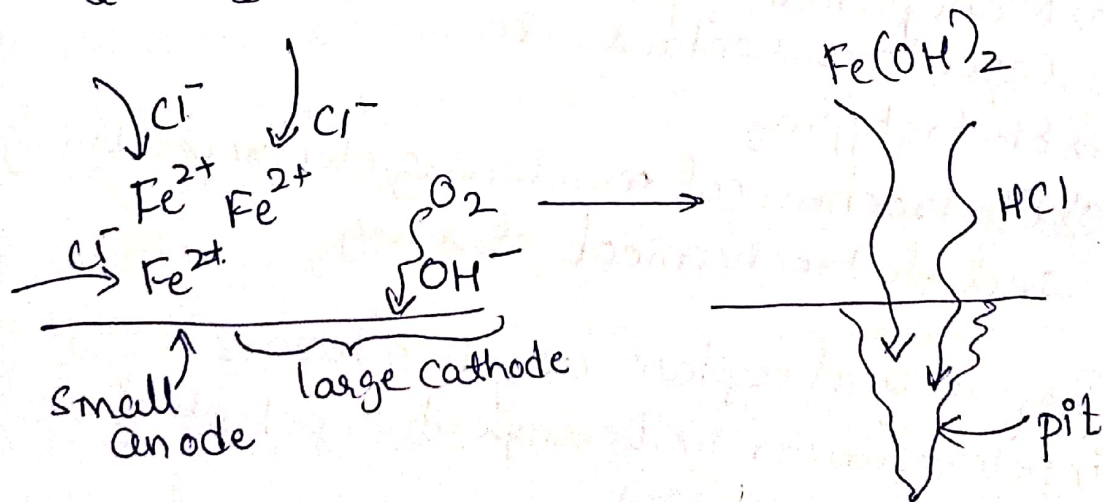 Cl⁻ Cl⁻
Fe²⁺ Fe²⁺
Cl⁻ Fe²⁺
O₂
OH⁻
small anode
large cathode
Fe(OH)₂
HCl
pit